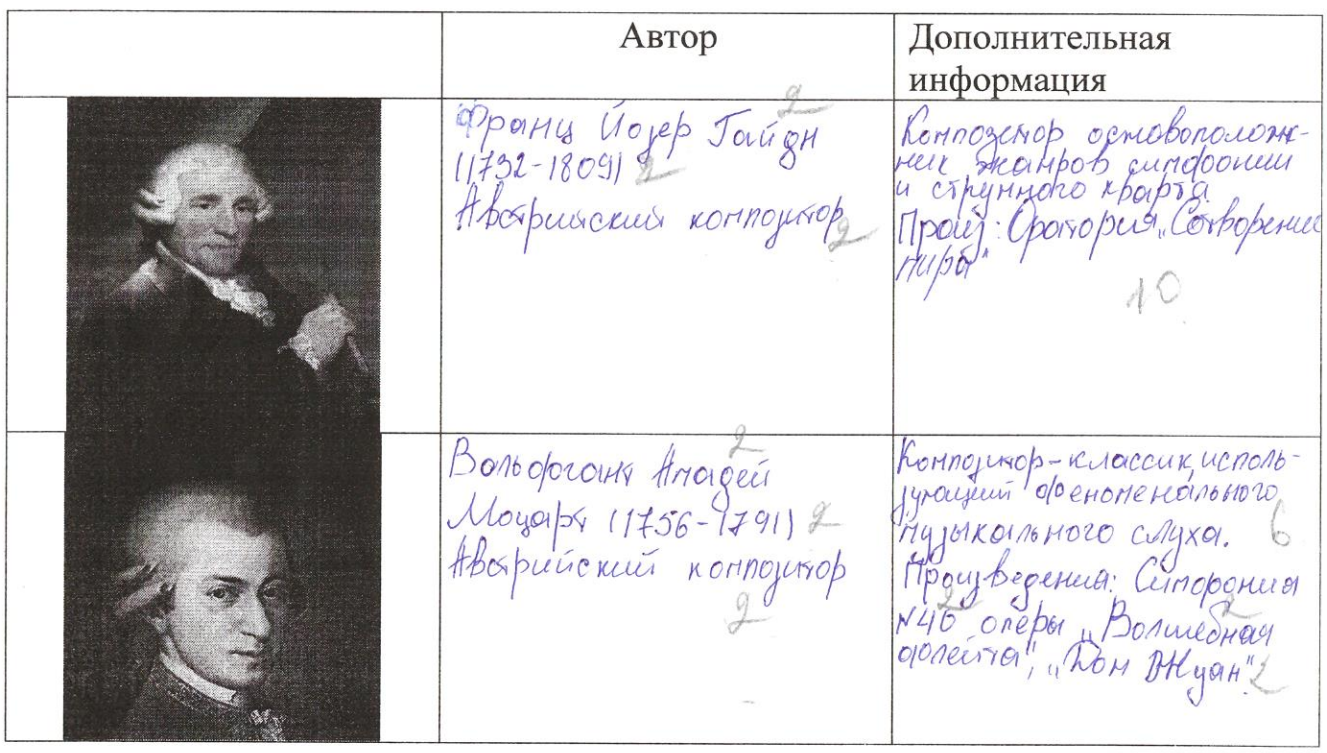 Автор
Дополнительная
информация
Франц Йозеф Гайдн 2
(1732-1809) 2
Австрийский композитор 2
Композитор основоположник
ник жанров симфонии
и струнного кварта.
Произ: Оратория „Сотворение
мира"
10
Вольфганг Амадей 2
Моцарт (1756-1791) 2
Австрийский композитор
2
Композитор-классик, исполь-
зующий феноменального
музыкального слуха. 6
Произведения: Симфония
№40 2 оперы „Волшебная 2
флейта", „Дон Жуан" 2